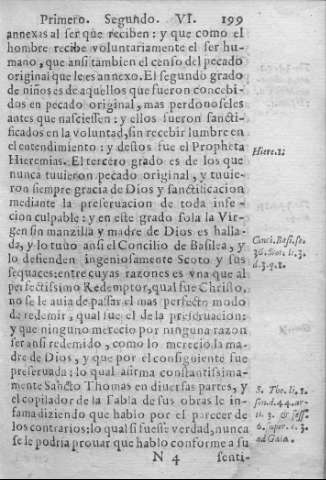 Primero. Segundo. VI. 199
annexas al ser que reciben: y que como el
hombre recibe voluntariamente el ser hu-
mano, que ansi tambien el censo del pecado
original que le es annexo. El segundo grado
de niños es de aquellos que fueron concebi-
dos en pecado original, mas perdonoseles
antes que naciessen: y ellos fueron sancti-
ficados en la voluntad, sin recebir lumbre en
el entendimiento: y destos fue el Propheta
Hieremias. El tercero grado es de los que
nunca tuuieron pecado original, y tuuie-
ron siempre gracia de Dios y sanctificacion
mediante la preseruacion de toda infe-
cion culpable: y en este grado sola la Vir-
gen sin manzilla y madre de Dios es halla-
da, y lo tuuo ansi el Concilio de Basilea, y
lo defienden ingeniosamente Scoto y sus
sequaces: entre cuyas razones es vna que al
perfectissimo Redemptor, qual fue Christo,
no se le auia de passar el mas perfecto modo
de redemir, qual fue el de la preseruacion:
y que ninguno merecio por ninguna razon
ser ansi redemido, como lo merecio la ma-
dre de Dios, y que por el consiguiente fue
preseruada: lo qual afirma constantissima-
mente Sancto Thomas en diuersas partes, y
el copilador de la Tabla de sus obras le in-
fama diziendo que hablo por el parecer de
los contrarios: lo qual si fuesse verdad, nunca
se le podria prouar que hablo conforme a su
N 4 senti-
Hiere. 1.
Conci. Basi. se.
36. Scot. li. 3.
d. 3. q. 1.
S. Tho. li. 1.
sen. d. 44. ar-
ti. 3. &
6. super. c. 3.
ad Gala.